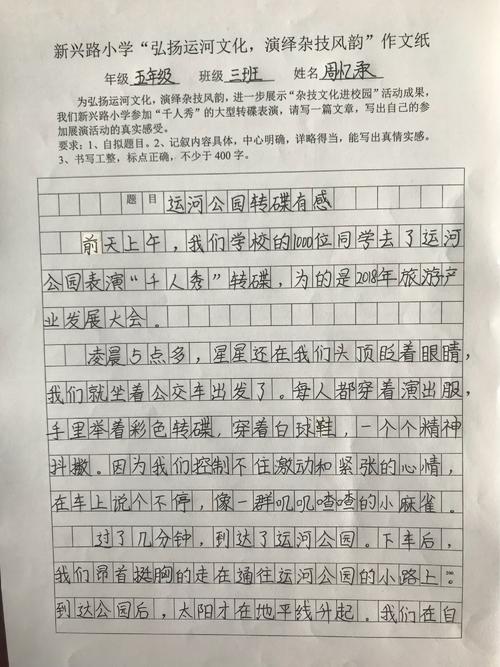 新兴路小学“弘扬运河文化，演绎杂技风韵”作文纸
年级 五年级 班级 三班 姓名 周忆承
为弘扬运河文化，演绎杂技风韵，进一步展示“杂技文化进校园”活动成果，
我们新兴路小学参加“千人秀”的大型转碟表演，请写一篇文章，写出自己的参
加展演活动的真实感受。
要求：1、自拟题目。2、记叙内容具体，中心明确，详略得当，能写出真情实感。
3、书写工整，标点正确，不少于 400 字。
题目 运河公园转碟有感
前天上午，我们学校的1000位同学去了运河
公园表演“千人秀”转碟，为的是2018年旅游产
业发展大会。
凌晨5点多，星星还在我们头顶眨着眼睛，
我们就坐着公交车出发了。每人都穿着演出服，
手里举着彩色转碟，穿着白球鞋，一个个精神
抖擞。因为我们控制不住激动和紧张的心情，
在车上说个不停，像一群叽叽喳喳的小麻雀。
过了几分钟，到达了运河公园。下车后，
我们昂首挺胸的走在通往运河公园的小路上。
200
到达公园后，太阳才在地平线升起。我们在自